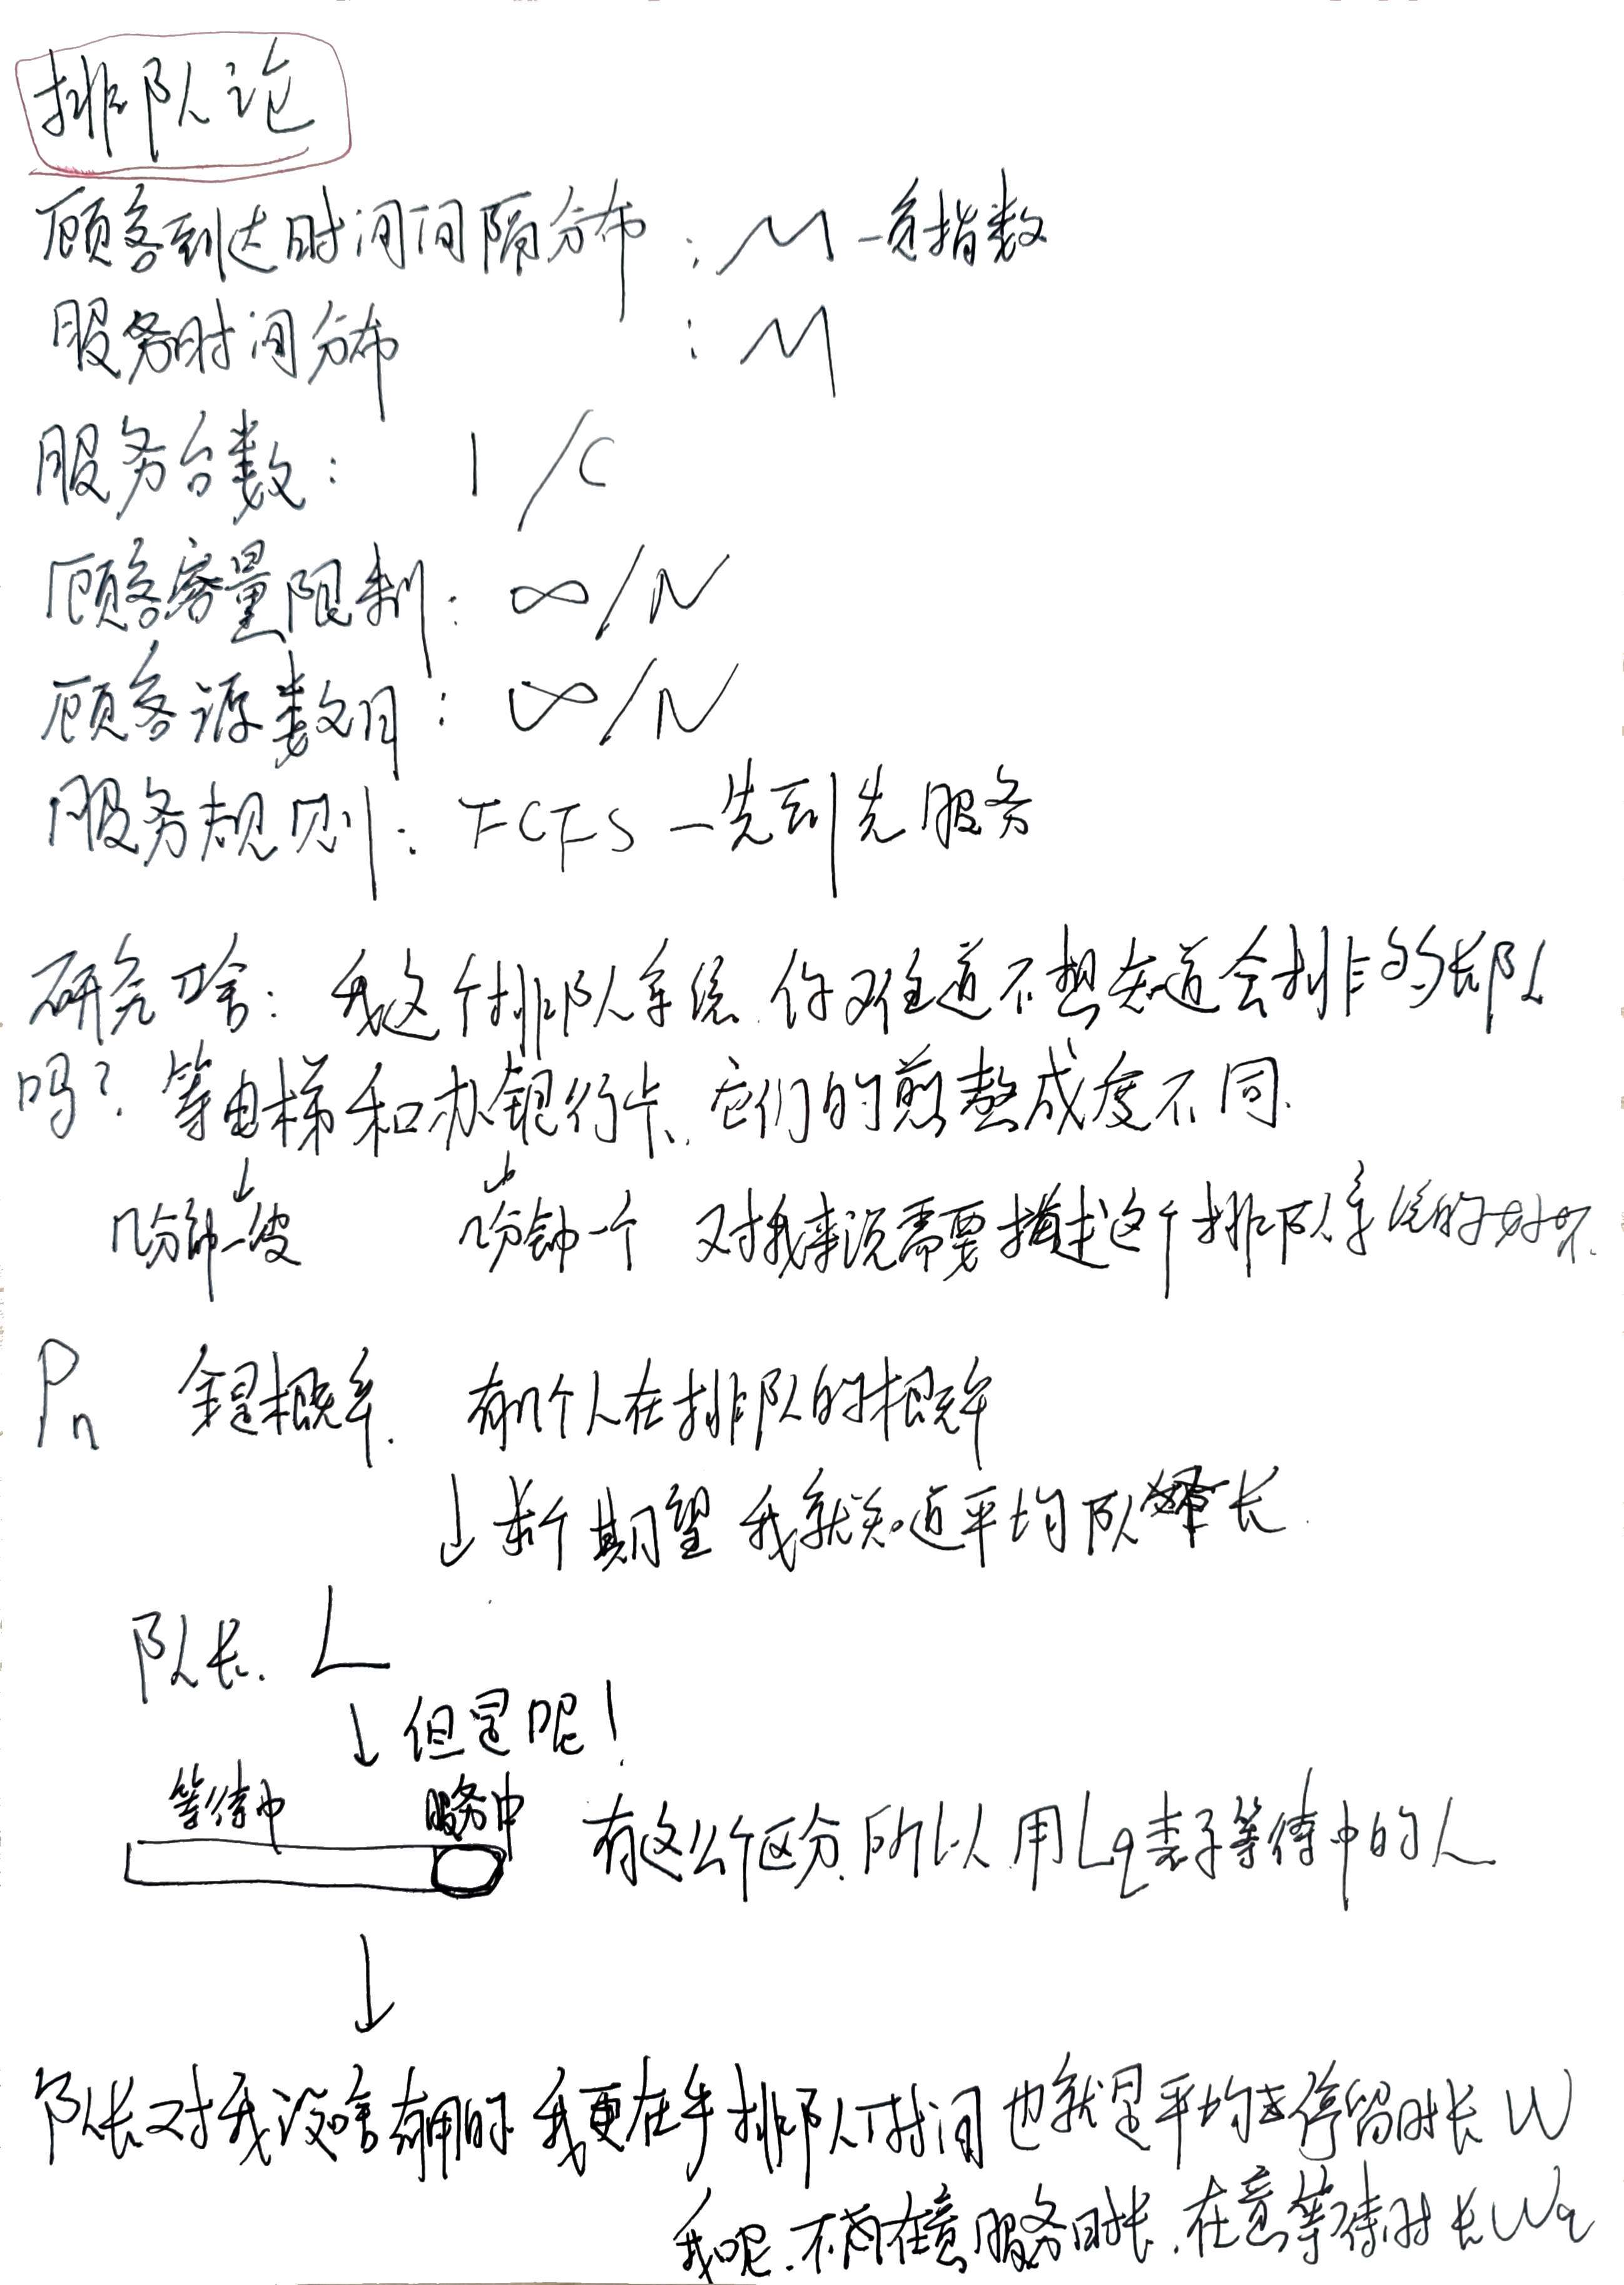 排队论
顾客到达时间间隔分布：M－负指数
服务时间分布：M
服务台数：1/C
顾客容量限制：∞/N
顾客源数目：∞/N
服务规则：FCFS－先到先服务
研究啥：我这个排队系统，你难道不想知道会排多长队
吗？等电梯和办银行卡，它们的煎熬成度不同.
↓ ↓
几分钟一波 几分钟一个 对我来说需要描述这个排队系统的好坏.
Pn 是概率. 有n个人在排队的概率
↓求个期望 我就知道平均队长.
队长. L
↓但是呢！
等待中 服务中
有这么个区分.所以用Lq表示等待中的人
↓
队长对我没啥有用的 我更在乎排队时间 也就是平均停留时长W
我呢.不在意服务时长.在意等待时长Wq